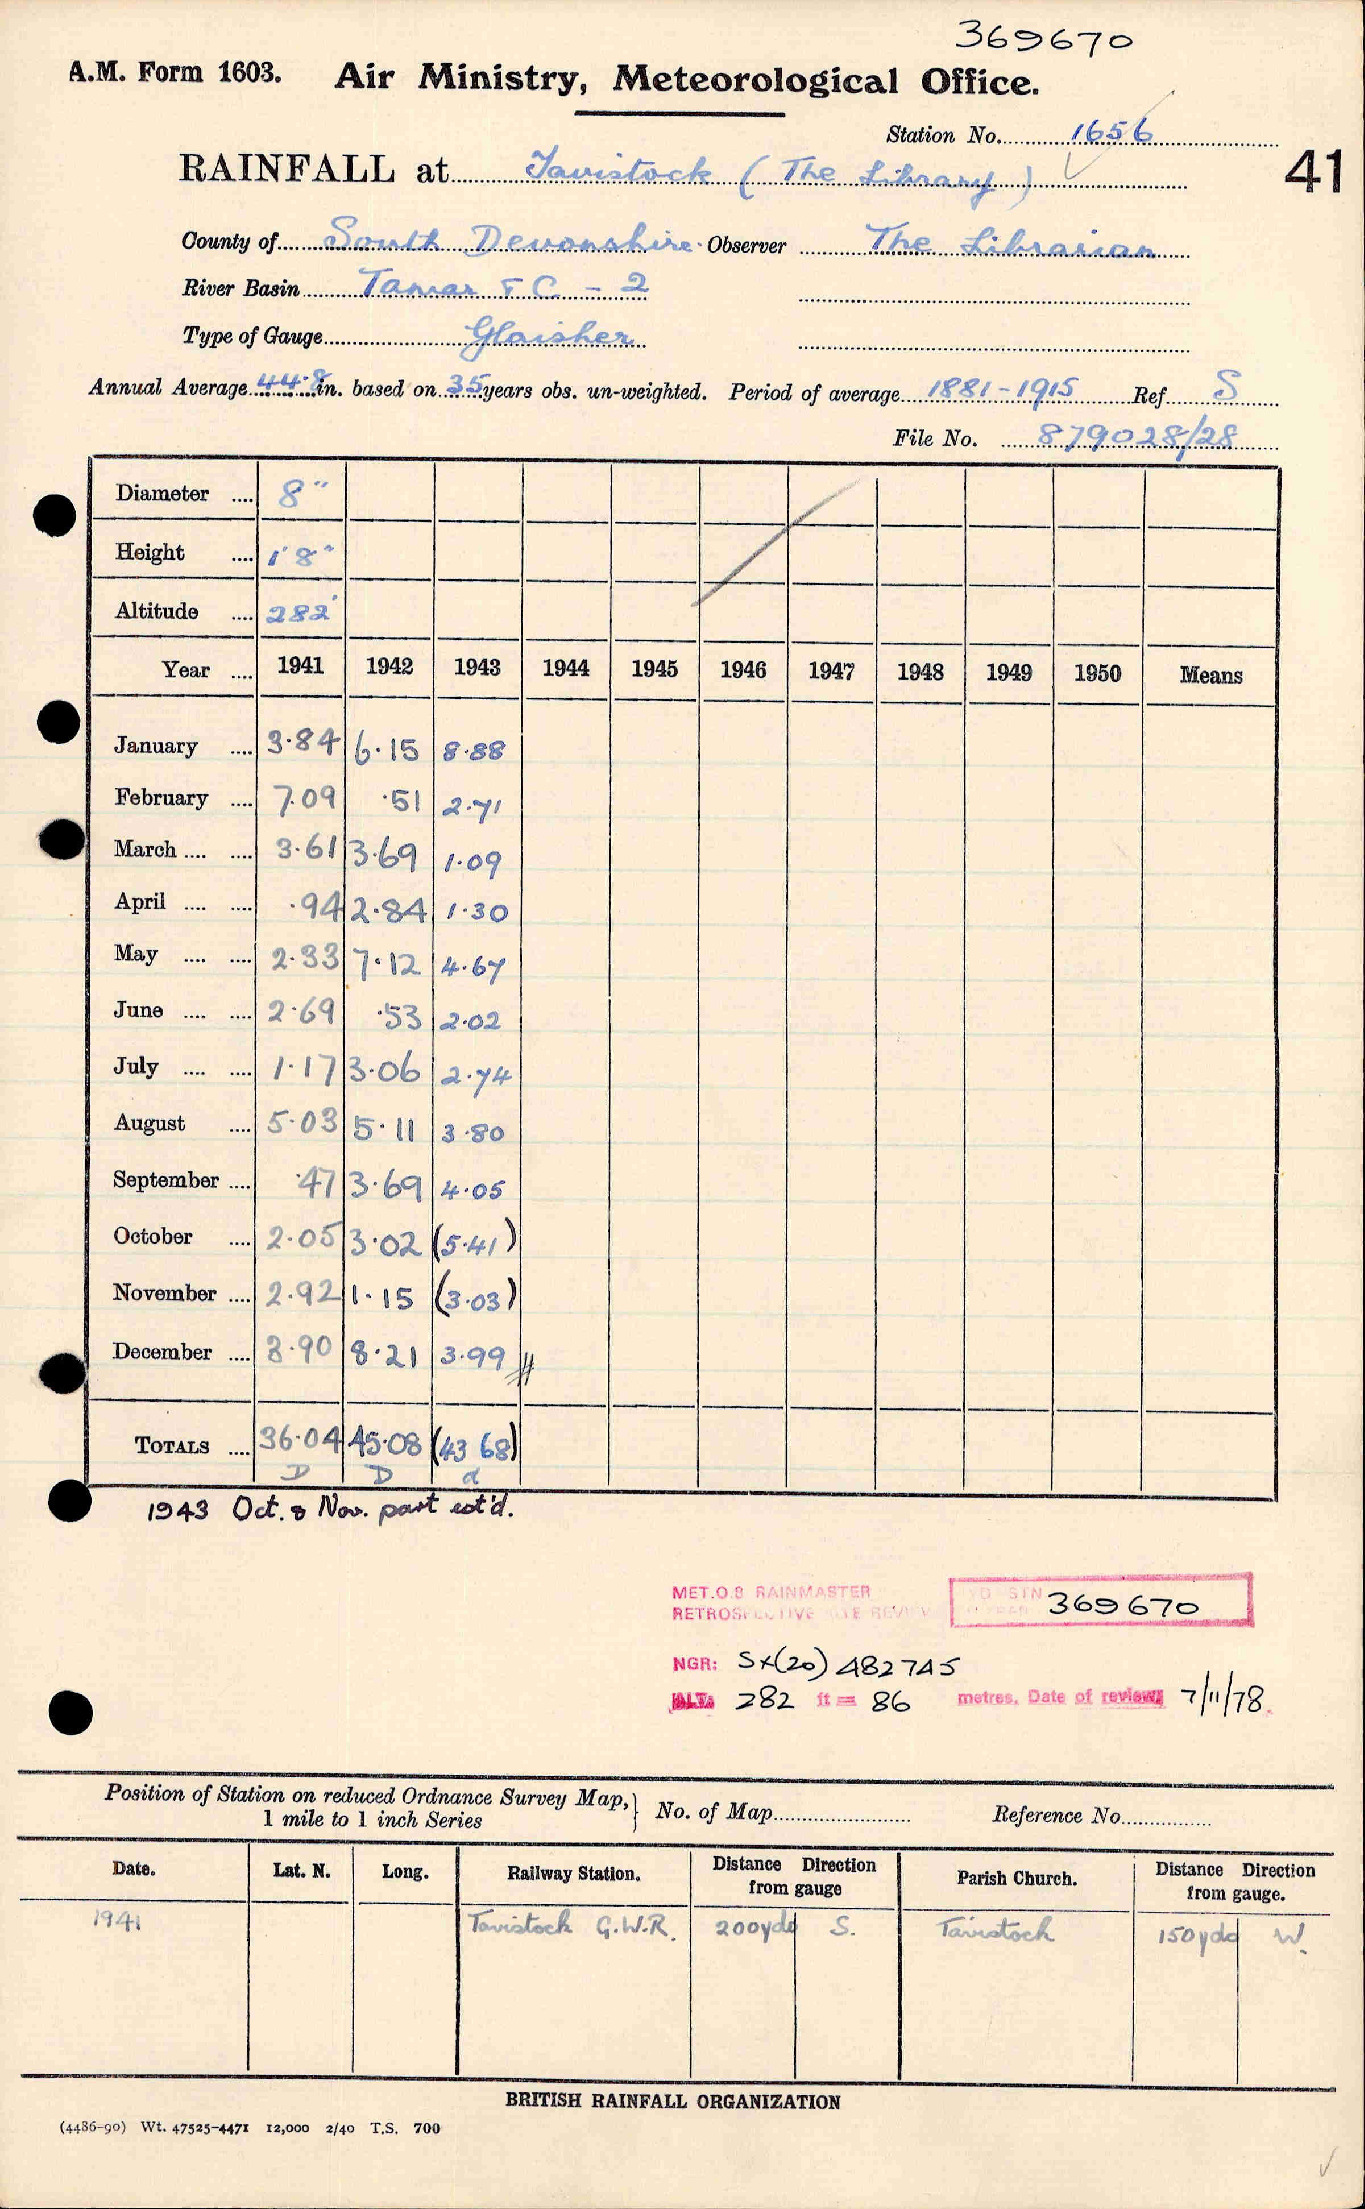 369670
A.M. Form 1603. Air Ministry, Meteorological Office.
Station No. 1656
41
RAINFALL at Tavistock (The Library)
County of South Devonshire Observer The Librarian
River Basin Tamar & C - 2
Type of Gauge Glaisher
Annual Average 44·8 in. based on 35 years obs. un-weighted. Period of average 1881-1915 Ref S
File No. 879028/28
Diameter .... 8"
Height .... 1'8"
Altitude .... 282'
Year .... 1941 1942 1943 1944 1945 1946 1947 1948 1949 1950 Means
January .... 3·84 6·15 8·88
February .... 7.09 ·51 2·71
March .... .... 3·61 3·69 1·09
April .... .... ·94 2·84 1·30
May .... .... 2·33 7·12 4·67
June .... .... 2·69 ·53 2·02
July .... .... 1·17 3·06 2·74
August .... 5·03 5·11 3·80
September .... ·47 3·69 4·05
October .... 2·05 3·02 (5·41)
November .... 2·92 1·15 (3·03)
December .... 3·90 8·21 3·99 //
TOTALS .... 36·04 45·08 (43 68)
D D d
1943 Oct. & Nov. part est'd.
MET.O.8 RAINMASTER
RETROSPECTIVE SITE REVIEW
STN 369670
NGR: SX(20) 482745
ALT: 282 ft = 86 metres. Date of review: 7/11/78.
Position of Station on reduced Ordnance Survey Map, 1 mile to 1 inch Series } No. of Map Reference No.
Date. Lat. N. Long. Railway Station. Distance Direction from gauge Parish Church. Distance Direction from gauge.
1941 Tavistock G.W.R. 200yds S. Tavistock 150yds W.
BRITISH RAINFALL ORGANIZATION
(4486-90) Wt. 47525-4471 12,000 2/40 T.S. 700